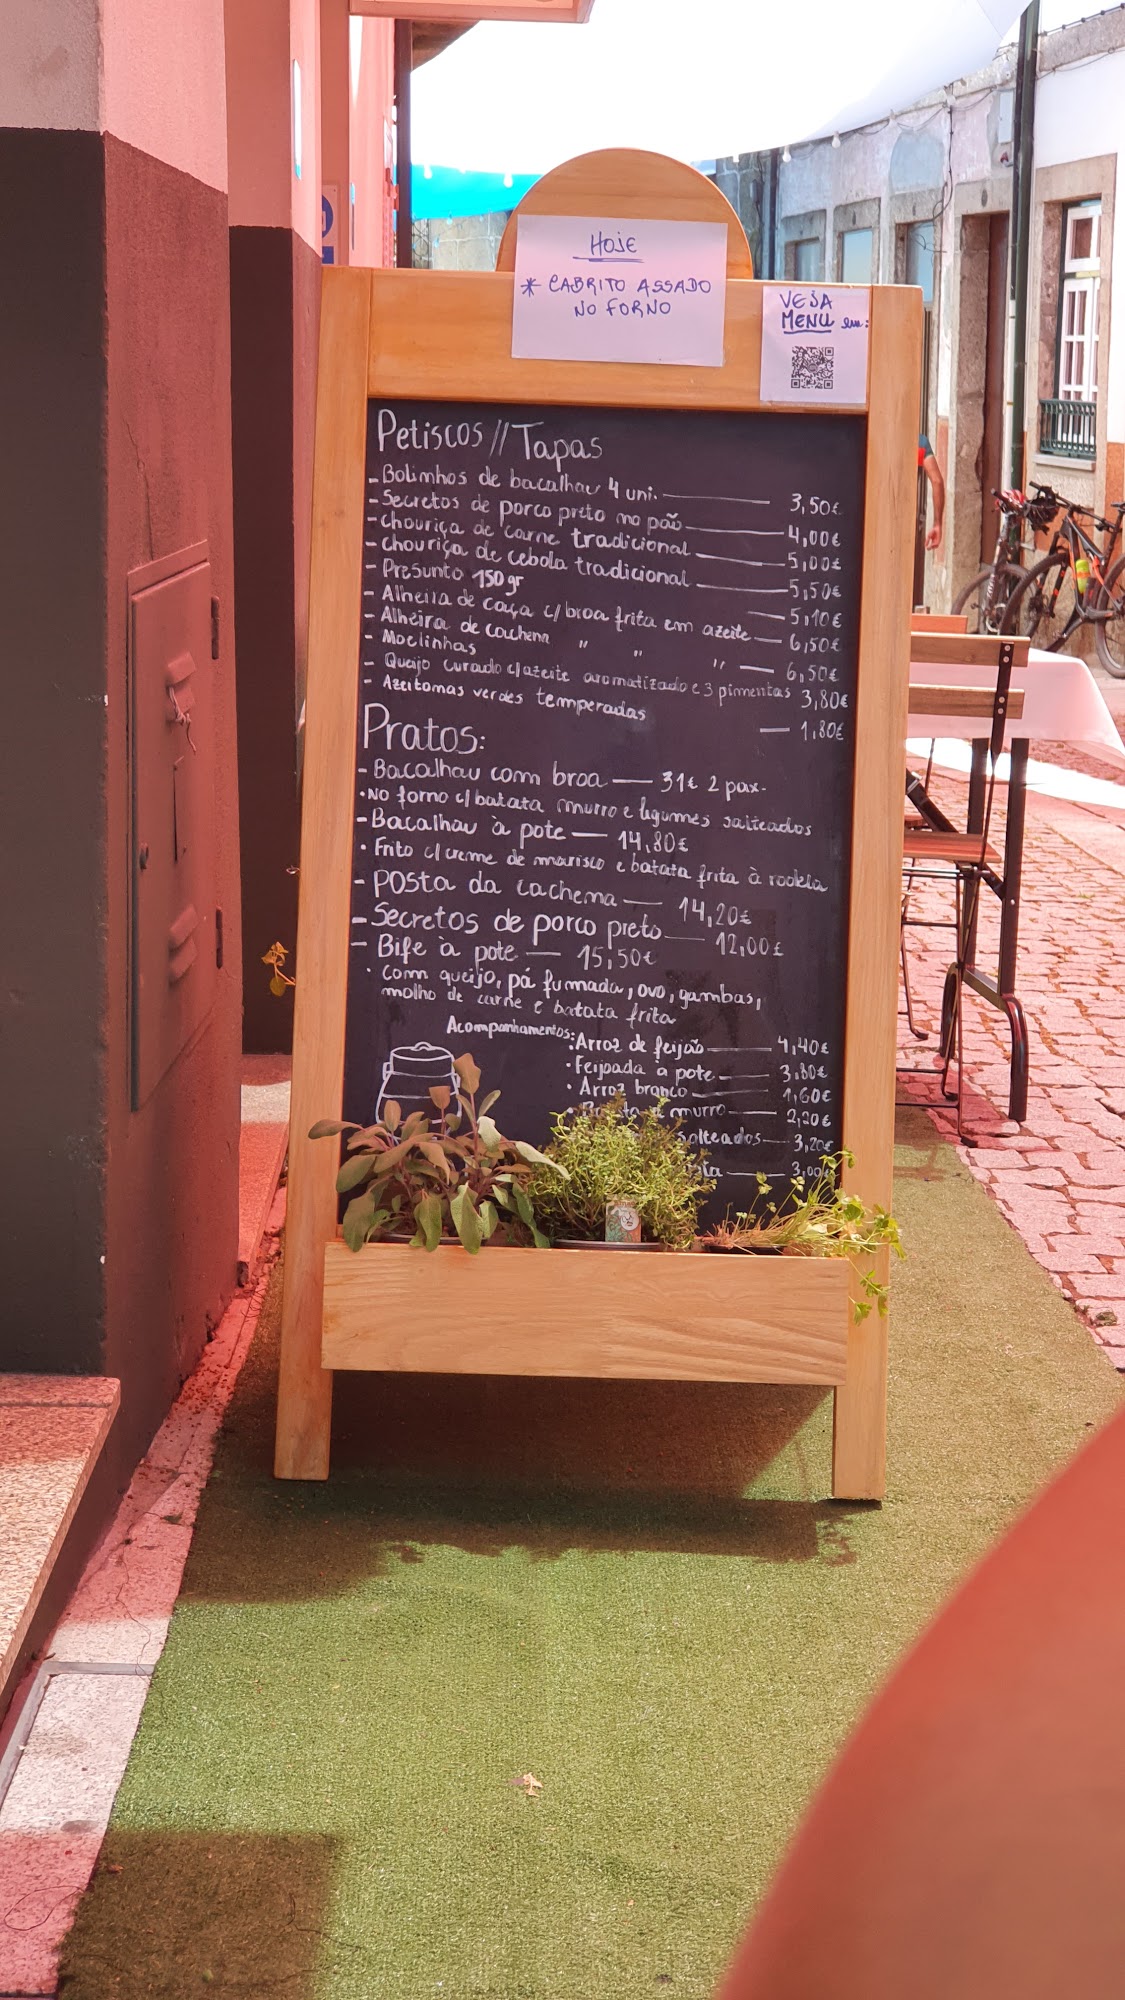 HOJE
* CABRITO ASSADO
NO FORNO
VEJA
MENU em:
Petiscos // Tapas
- Bolinhos de bacalhau 4 uni. 3,50€
- Secretos de porco preto no pão 4,00€
- Chouriça de carne tradicional 5,00€
- Chouriça de cebola tradicional 5,50€
- Presunto 150gr 5,10€
- Alheira de caça c/ broa frita em azeite 6,50€
- Alheira de cachena " " " 6,50€
- Moelinhas 3,80€
- Queijo curado c/azeite aromatizado e 3 pimentas
- Azeitonas verdes temperadas 1,80€
Pratos:
- Bacalhau com broa — 31€ 2 pax.
• No forno c/ batata murro e legumes salteados
- Bacalhau à pote — 14,80€
• Frito c/ creme de marisco e batata frita à rodela
- Posta da cachena — 14,20€
- Secretos de porco preto — 12,00€
- Bife à pote — 15,50€
• Com queijo, pá fumada, ovo, gambas,
molho de carne e batata frita
Acompanhamentos:
• Arroz de feijão 4,40€
• Feijoada à pote 3,80€
• Arroz branco 1,60€
• murro 2,20€
salteados 3,20€
3,00€